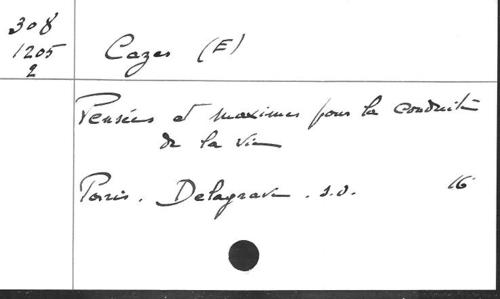 308
1205
2
Cazes (E)
Pensées et maximes pour la conduite
de la vie
Paris. Delagrave. s.d. 16